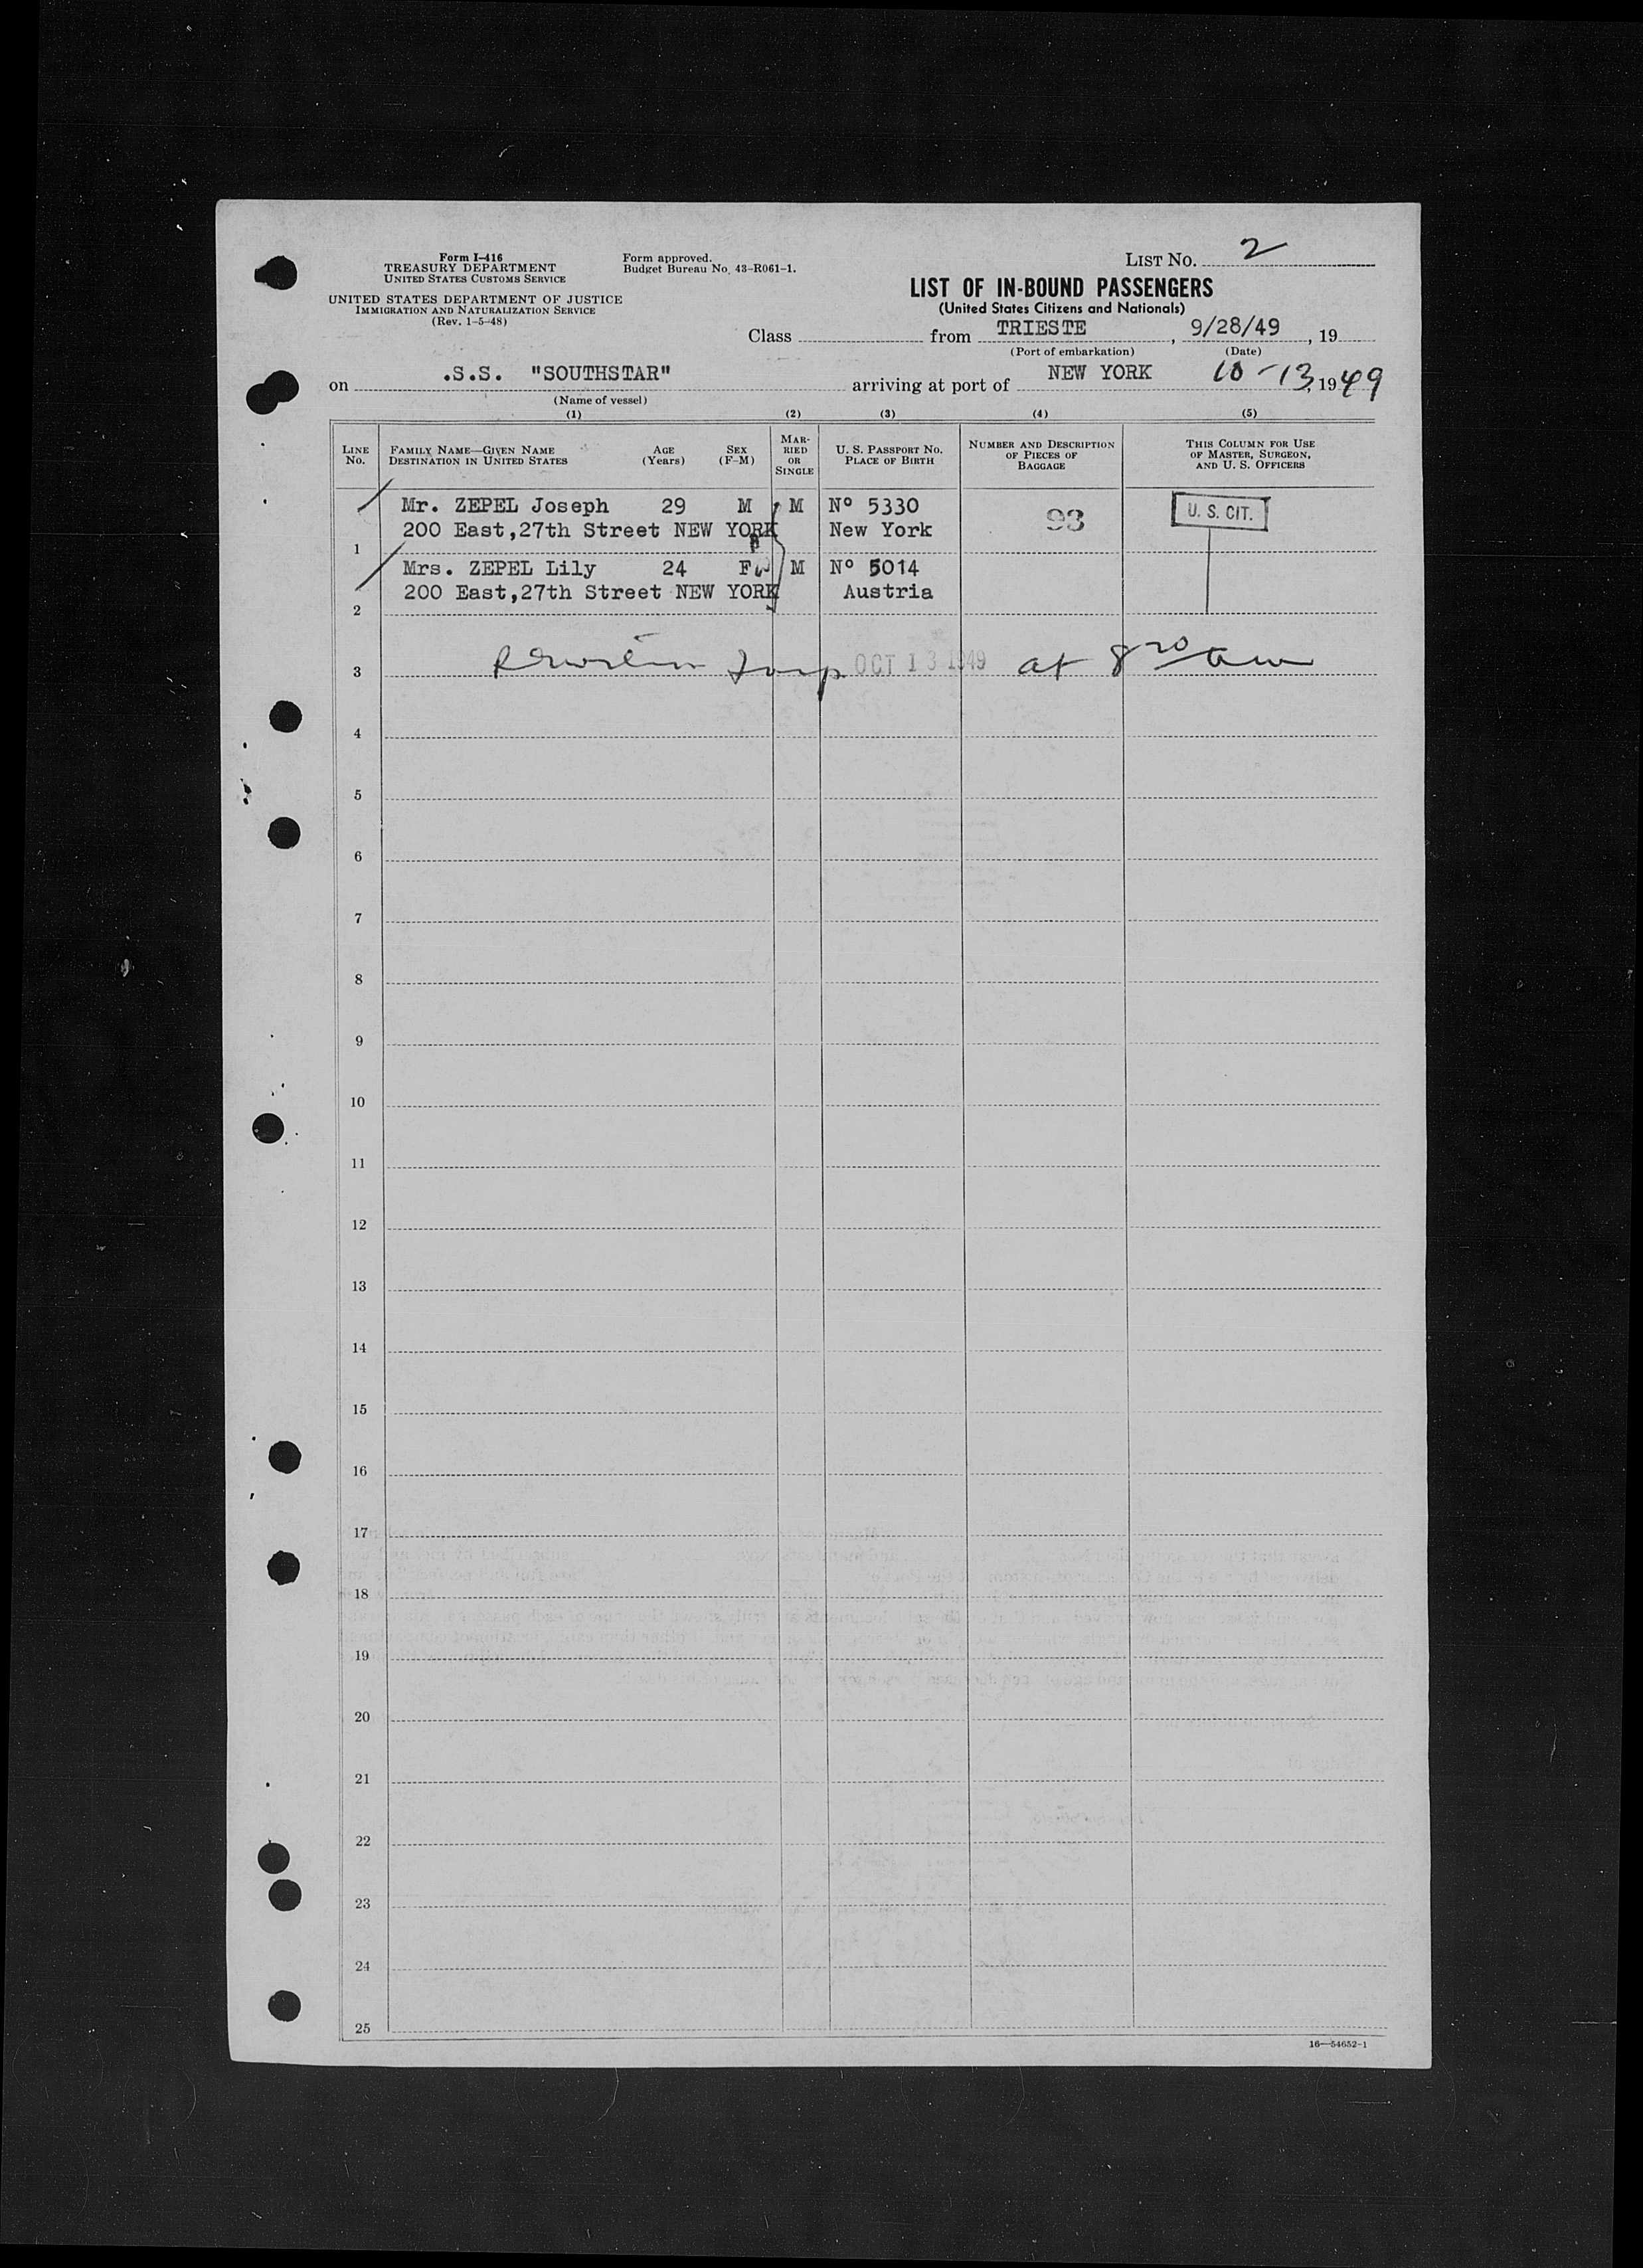 Form I-416
TREASURY DEPARTMENT
UNITED STATES CUSTOMS SERVICE
UNITED STATES DEPARTMENT OF JUSTICE
IMMIGRATION AND NATURALIZATION SERVICE
(Rev. 1-5-48)
Form approved.
Budget Bureau No. 43-R061-1.
LIST NO. 2
LIST OF IN-BOUND PASSENGERS
(United States Citizens and Nationals)
Class from TRIESTE, 9/28/49, 19
(Port of embarkation) (Date)
on .S.S. "SOUTHSTAR" arriving at port of NEW YORK 10-13, 1949
(Name of vessel)
(1) (2) (3) (4) (5)
LINE No. FAMILY NAME—GIVEN NAME DESTINATION IN UNITED STATES AGE (Years) SEX (F-M) MARRIED OR SINGLE U. S. PASSPORT NO. PLACE OF BIRTH NUMBER AND DESCRIPTION OF PIECES OF BAGGAGE THIS COLUMN FOR USE OF MASTER, SURGEON, AND U. S. OFFICERS
Mr. ZEPEL Joseph 29 M M Nº 5330 93 U. S. CIT.
200 East,27th Street NEW YORK New York
1
Mrs. ZEPEL Lily 24 F M Nº 5014
200 East,27th Street NEW YORK Austria
2
3 OCT 13 1949 at 8
4
5
6
7
8
9
10
11
12
13
14
15
16
17
18
19
20
21
22
23
24
25
16—54652-1